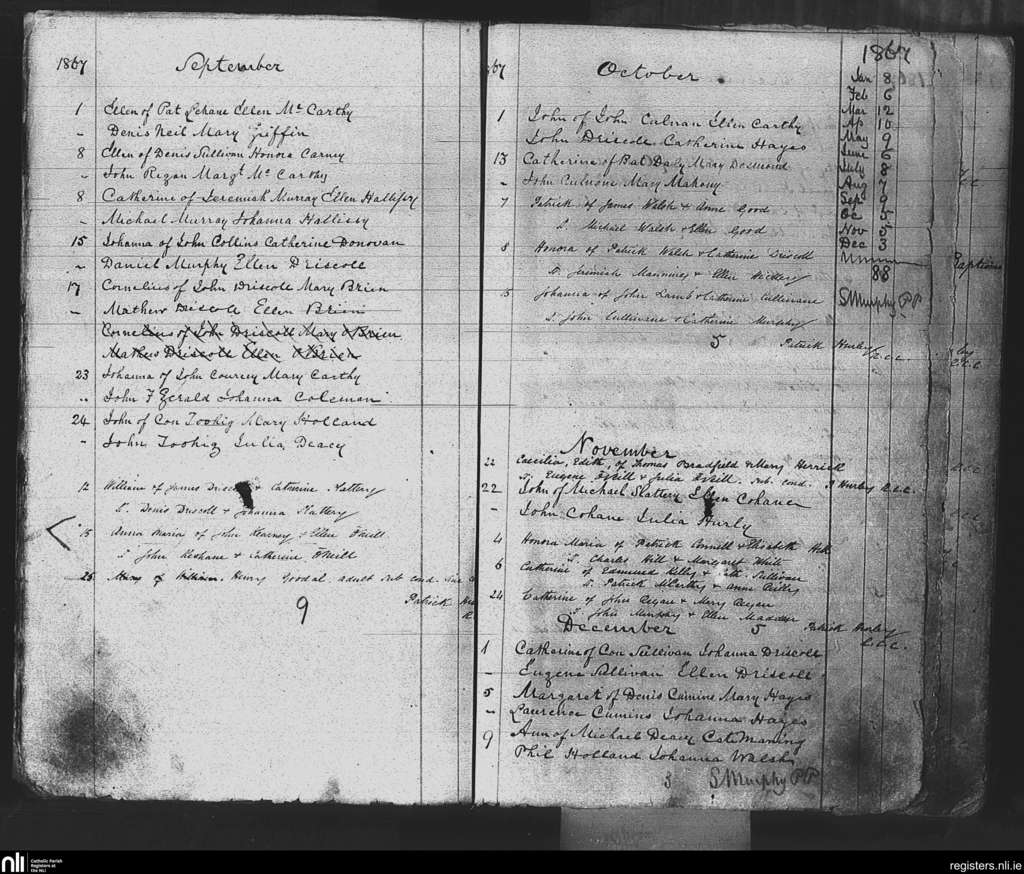 1867 September
1 Ellen of Pat Lehane Ellen Mc Carthy
- Denis Neil Mary Griffin
8 Ellen of Denis Sullivan Honora Carney
- John Regan Margt Mc Carthy
8 Catherine of Jeremiah Murray Ellen Hallissy
- Michael Murray Johanna Hallissy
15 Johanna of John Collins Catherine Donovan
- Daniel Murphy Ellen Driscoll
17 Cornelius of John Driscoll Mary Brien
- Mathew Discole Ellen Brien
Cornelius of John Driscoll Mary O'Brien
Mathew Driscoll Ellen O'Brien
23 Johanna of John Courcey Mary Carthy
" John F Gerald Johanna Coleman
24 John of Con Toohig Mary Holland
- John Toohig Julia Deacy
12 William of James Catherine Slattery
S. Denis Driscoll & Johanna Slattery
15 Anna Maria of John Kearney & Ellen O'Neill
S. John Keohane & Catherine O'Neill
25 Mary of William Henry Goodal adult sub cond.
9 Patrick
67 October
1 John of John Calnan Ellen Carthy
John Driscoll Catherine Hayes
13 Catherine of Pat Daly Mary Desmond
- John Culinane Mary Mahony
7 Patrick of James Walsh & Anne Good
S. Michael Walsh & Ellen Good
8 Honora of Patrick Walsh & Catherine Driscoll
S. Jeremiah & Ellen
15 Johanna of John Lamb & Catherine Cullinane
S. John Cullinane & Catherine Murphy
5 Patrick Hurley C.C.
November
22 Caecilia, Edith, of Thomas Bradfield & Mary Herrick
S. Eugene O'Neill & Julia O'Neill. sub. cond. P Hurley C.C.
22 John of Michael Slattery Ellen Cohane
- John Cohane Julia Hurly
4 Honora Maria of Patrick Connell & Elisabeth
S. Charles Hill & Margaret White
6 Catherine of Edmund Kelly & Cath. Sullivan
S. Patrick McCarthy & Anne Reilly
24 Catherine of John Regan & Mary Regan
S. John Murphy & Ellen Madden
December 5 Patrick Hurley C.C.
1 Catherine of Con Sullivan Johanna Driscoll
- Eugene Sullivan Ellen Driscoll
5 Margaret of Denis Cumins Mary Hayes
- Laurence Cumins Johanna Hayes
9 Ann of Michael Deacy Cate Maning
Phil Holland Johanna Walsh
3 S Murphy PP
1867
Jan 8
Feb 6
Mar 12
Ap 10
May 9
June 6
July 8
Aug 7
Sep 9
Oc 5
Nov 5
Dec 3
88
S Murphy PP
Baptisms
nli Catholic Parish Registers at the NLI
registers.nli.ie